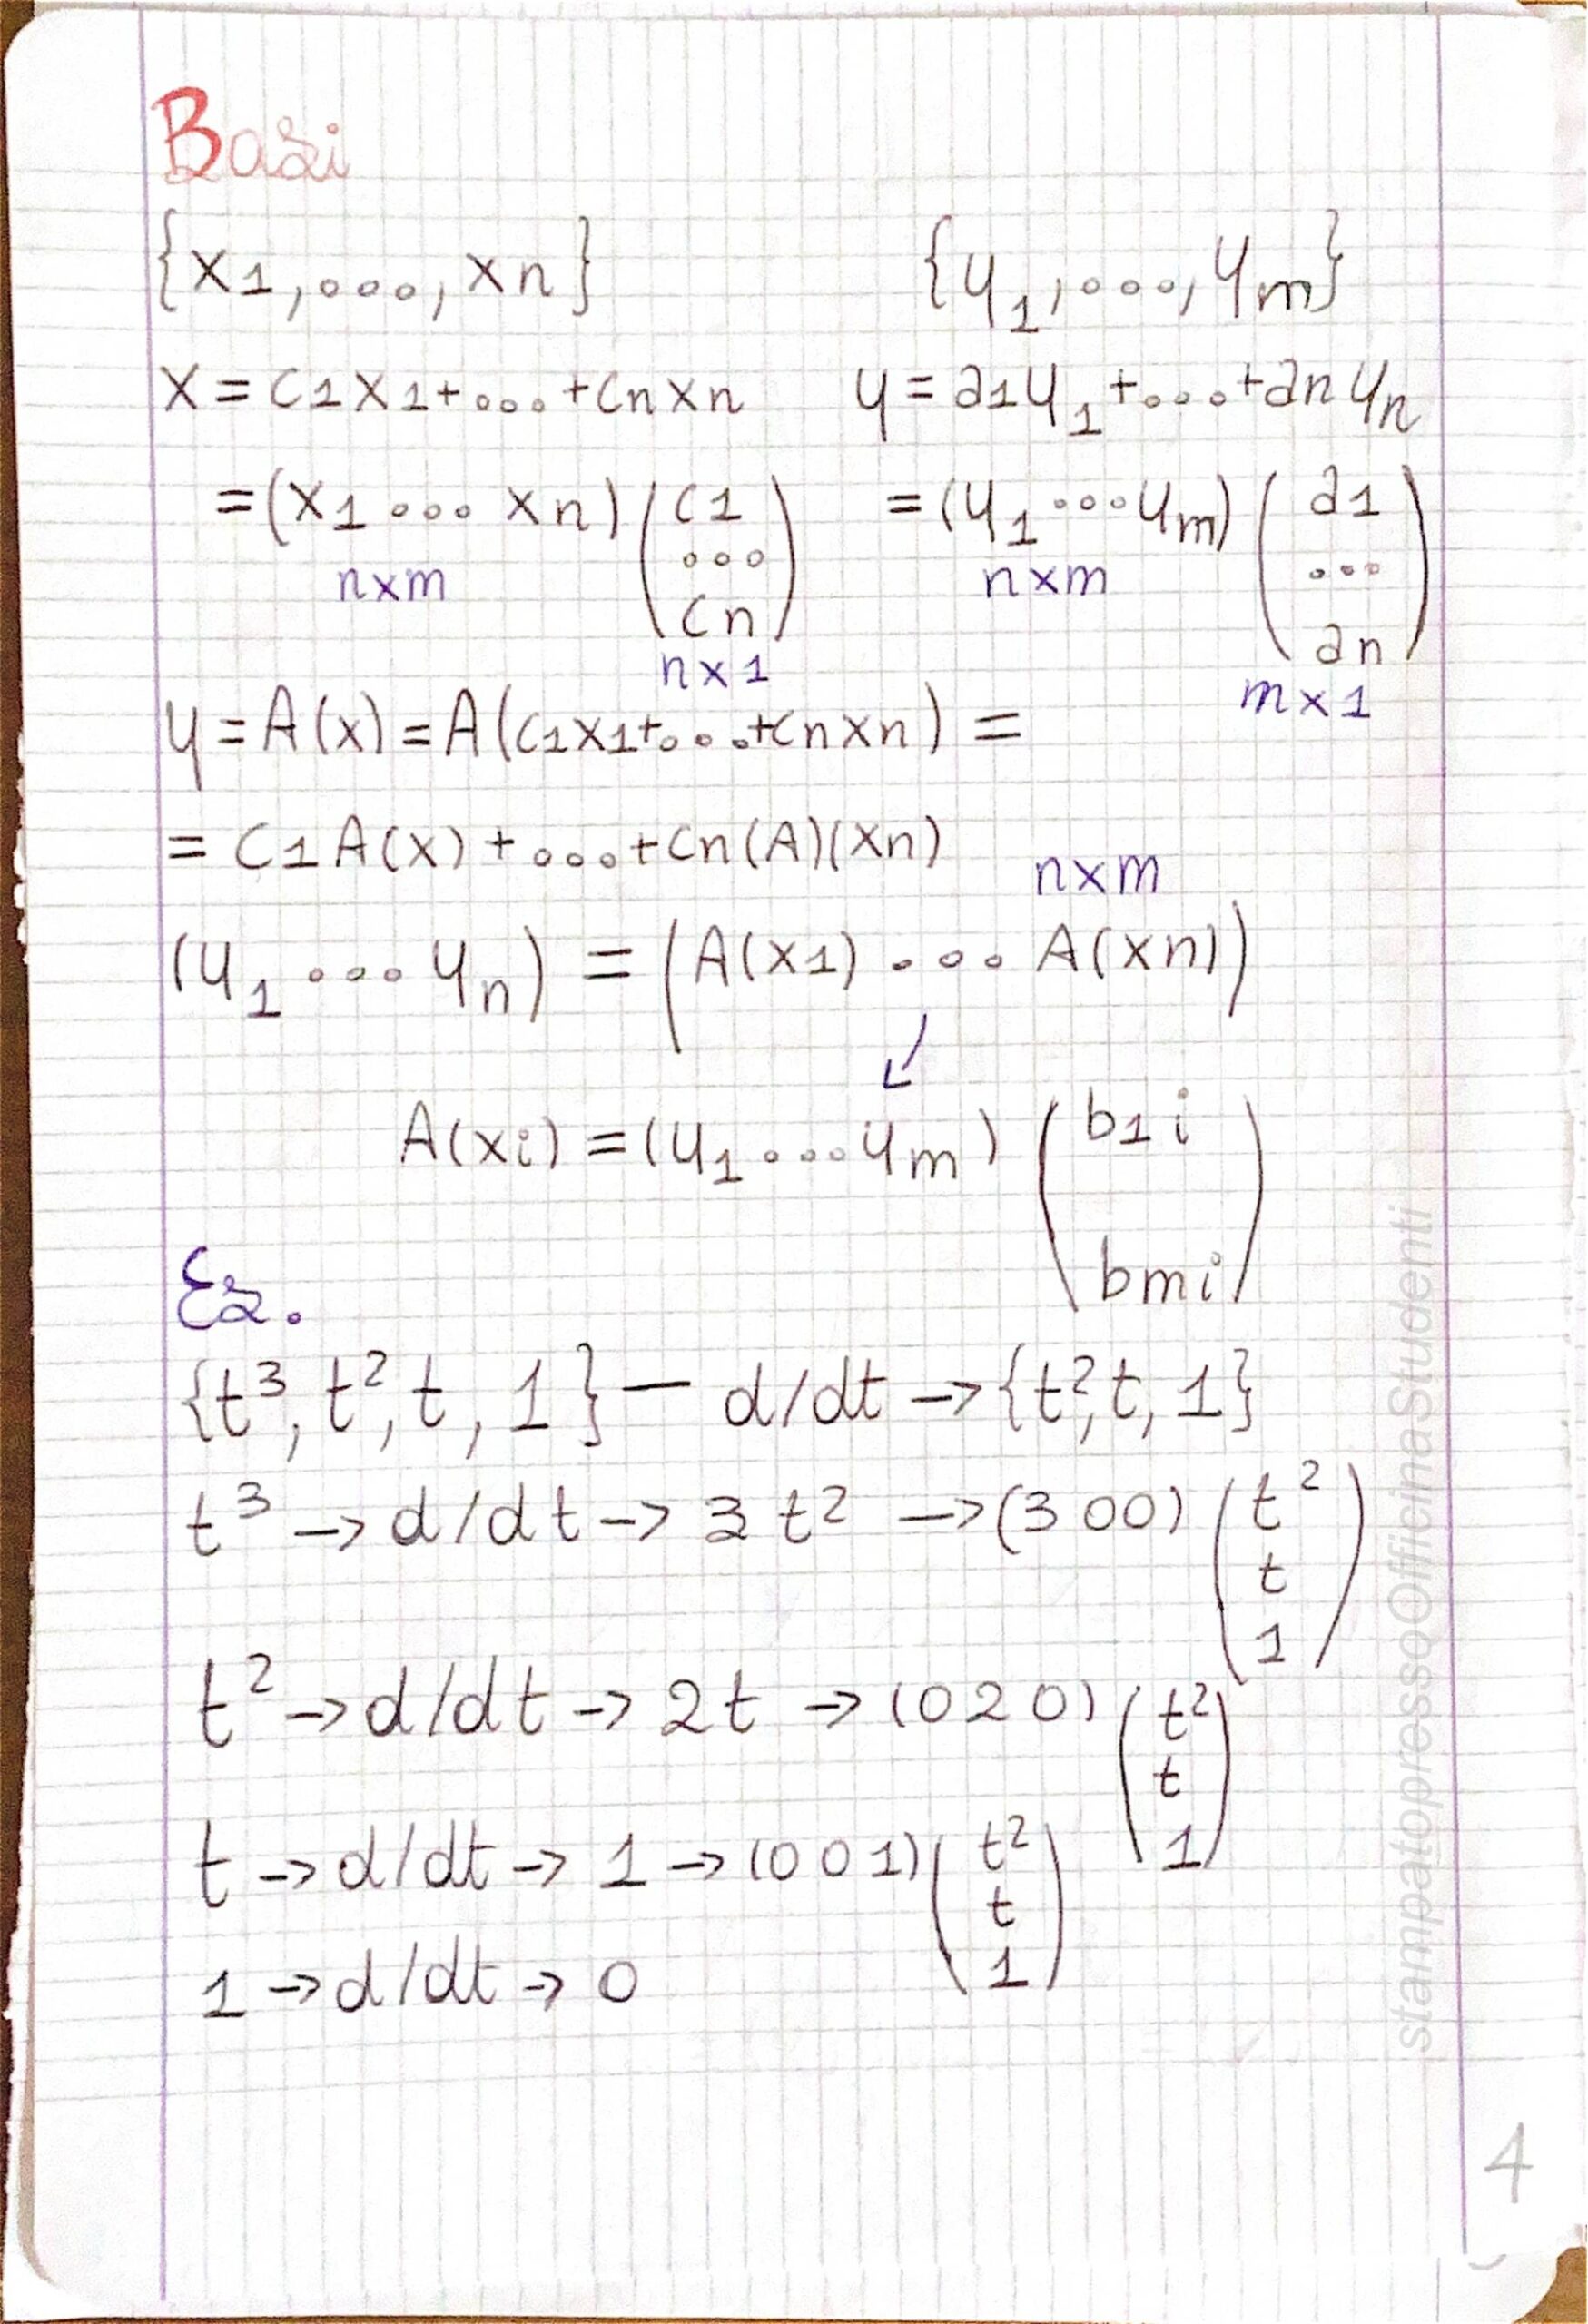 Basi
{x1,..., xn} {y1,..., ym}
x = c1x1+...+cnxn y = a1y1+...+anyn
=(x1 ... xn)(c1 ... cn) =(y1 ... ym)(a1 ... an)
nxm nxm
nx1 mx1
y = A(x) = A(c1x1+...+cnxn) =
= c1A(x)+...+cn(A)(xn)
nxm
(y1 ... yn) = (A(x1) ... A(xn))
↙
A(xi) = (y1 ... ym) (b1i bmi)
Es.
{t³, t², t, 1} — d/dt → {t², t, 1}
t³ → d/dt → 3t² → (3 0 0) (t² t 1)
t² → d/dt → 2t → (0 2 0) (t² t 1)
t → d/dt → 1 → (0 0 1) (t² t 1)
1 → d/dt → 0
stampatopressoOfficinaStudenti
4